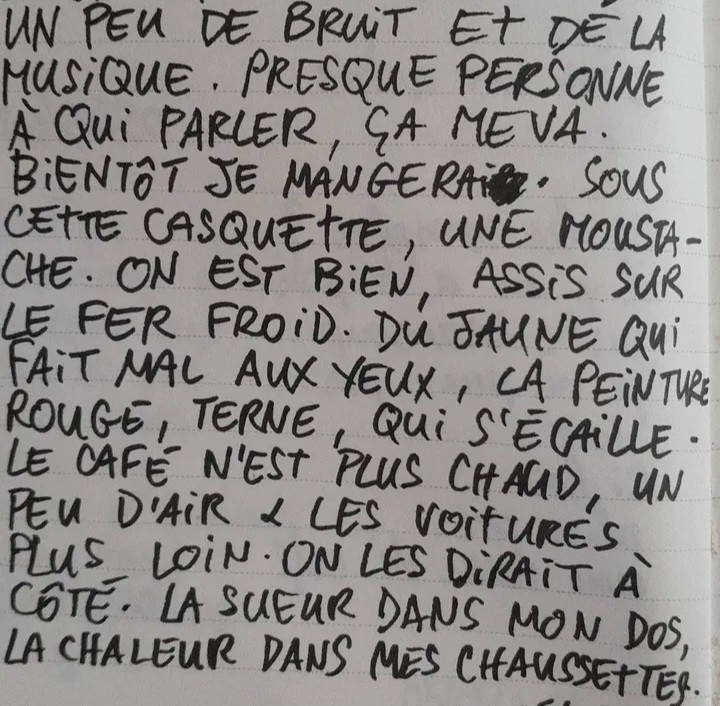 UN PEU DE BRUIT ET DE LA
MUSIQUE. PRESQUE PERSONNE
À QUI PARLER, ÇA ME VA.
BIENTÔT JE MANGERAI. SOUS
CETTE CASQUETTE, UNE MOUSTA-
CHE. ON EST BIEN, ASSIS SUR
LE FER FROID. DU JAUNE QUI
FAIT MAL AUX YEUX, LA PEINTURE
ROUGE, TERNE, QUI S'ÉCAILLE.
LE CAFÉ N'EST PLUS CHAUD, UN
PEU D'AIR & LES VOITURES
PLUS LOIN. ON LES DIRAIT À
CÔTÉ. LA SUEUR DANS MON DOS,
LA CHALEUR DANS MES CHAUSSETTES.